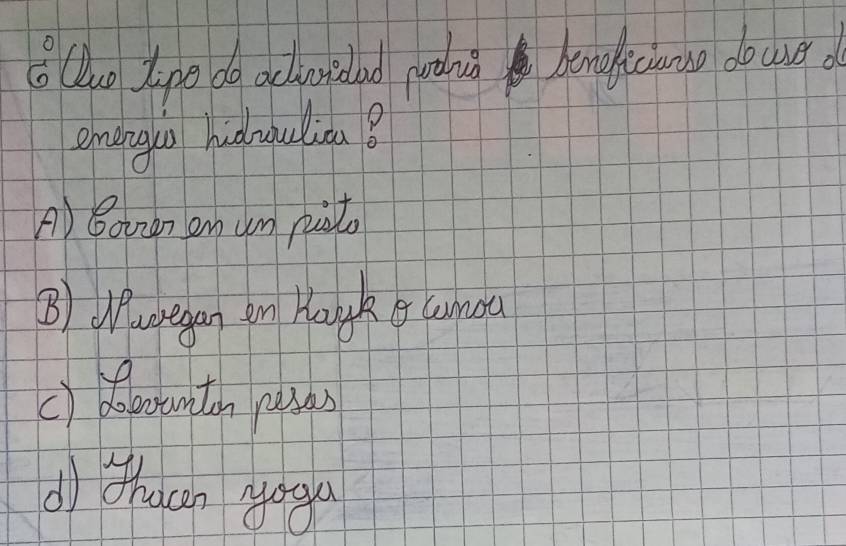 ¿Que tipo de actividad podria beneficiarse de uso d
energia hidraulica?
A) Correr en un pista
B) Navegar en Kayk o canoa
C) Levantar pesas
d) Hacer yoga